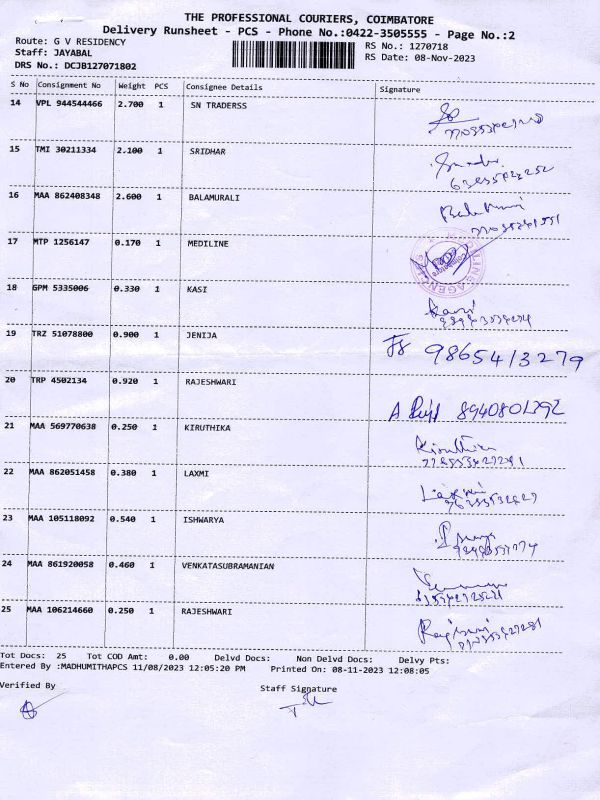 THE PROFESSIONAL COURIERS, COIMBATORE
Delivery Runsheet - PCS - Phone No.:0422-3505555 - Page No.:2
Route: G V RESIDENCY
Staff: JAYABAL
DRS No.: DCJB127071802
RS No.: 1270718
RS Date: 08-Nov-2023
S No Consignment No Weight PCS Consignee Details Signature
14 VPL 944544466 2.700 1 SN TRADERSS
15 TMI 30211334 2.100 1 SRIDHAR
16 MAA 862408348 2.600 1 BALAMURALI
17 MTP 1256147 0.170 1 MEDILINE
18 GPM 5335006 0.330 1 KASI
19 TRZ 51078800 0.900 1 JENIJA 9865413279
20 TRP 4502134 0.920 1 RAJESHWARI
21 MAA 569770638 0.250 1 KIRUTHIKA
22 MAA 862051458 0.380 1 LAXMI
23 MAA 105118092 0.540 1 ISHWARYA
24 MAA 861920058 0.460 1 VENKATASUBRAMANIAN
25 MAA 106214660 0.250 1 RAJESHWARI
Tot Docs: 25 Tot COD Amt: 0.00 Delvd Docs: Non Delvd Docs: Delvy Pts:
Entered By :MADHUMITHAPCS 11/08/2023 12:05:20 PM Printed On: 08-11-2023 12:08:05
Verified By
Staff Signature